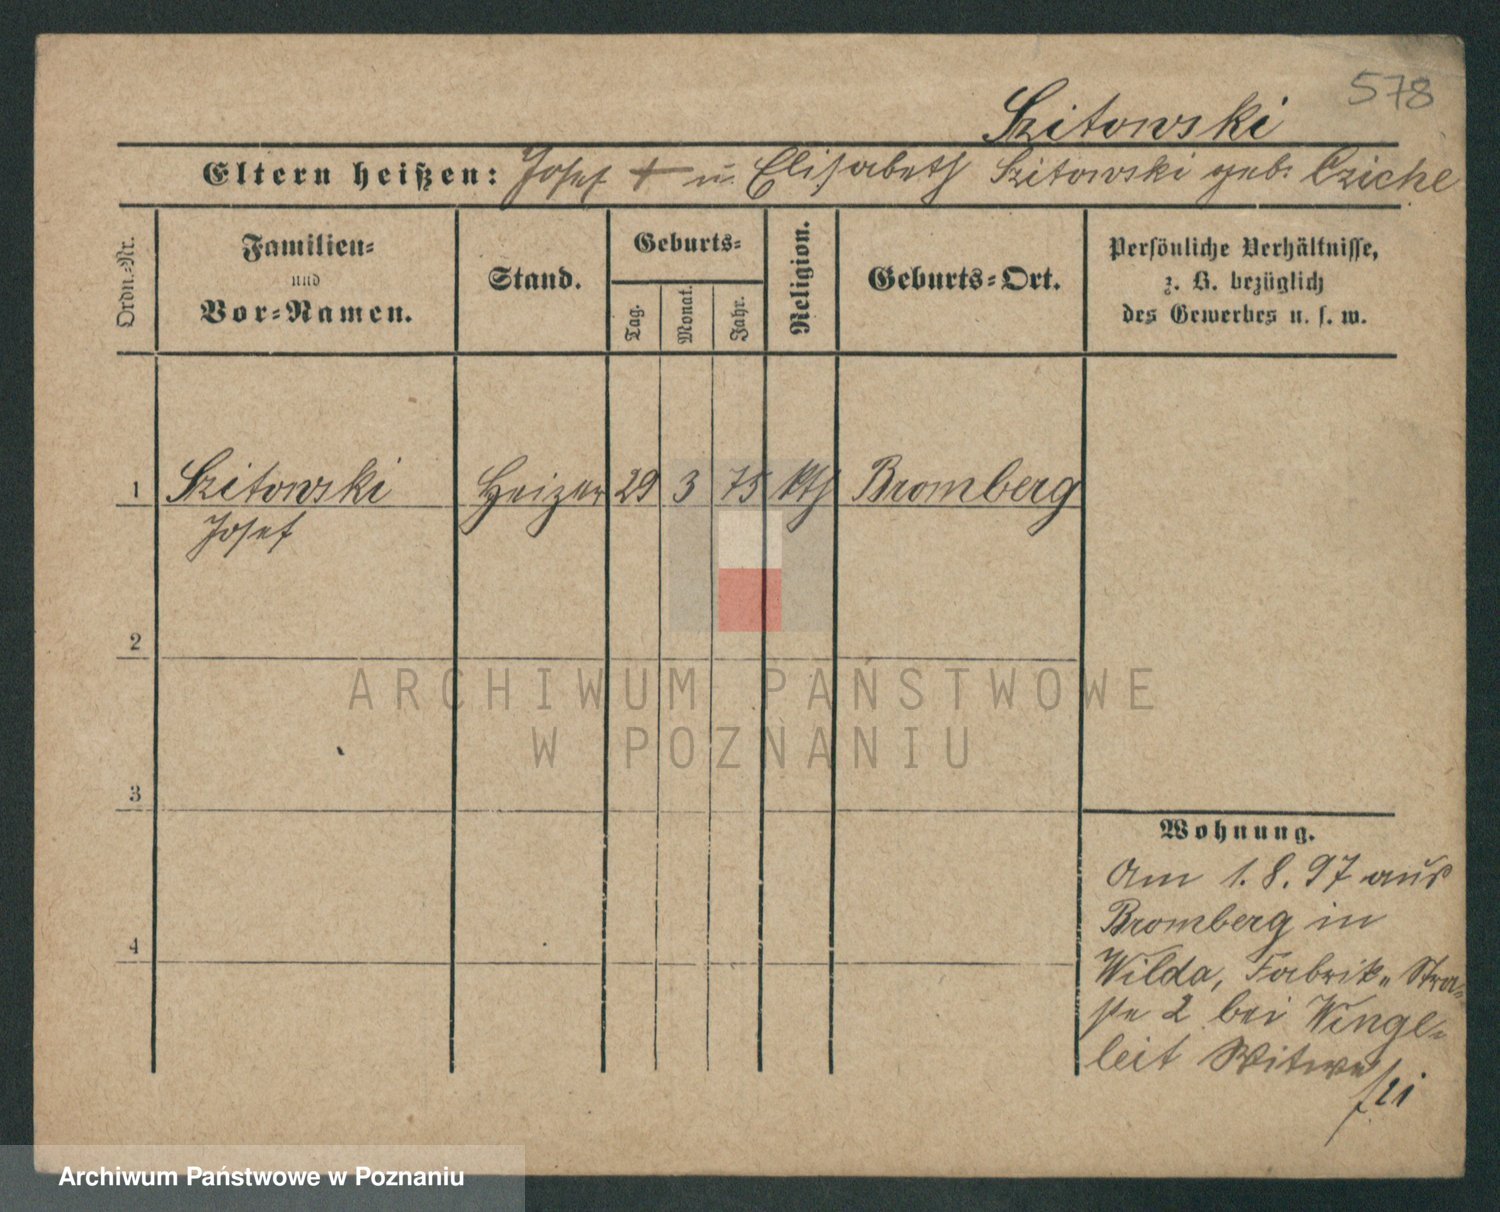 578
Szitowski
Eltern heißen: Josef + u. Elisabeth Szitowski geb. Cziche
Ordn.-Nr.
Familien-
und
Vor-Namen.
Stand.
Geburts-
Tag.
Monat.
Jahr.
Religion.
Geburts-Ort.
Persönliche Verhältnisse,
z. B. bezüglich
des Gewerbes u. s. w.
1 Szitowski Heizer 29 3 75 kth Bromberg
Josef
2
3
4
Wohnung.
Am 1. 8. 97 aus
Bromberg in
Wilda, Fabrik- Stra-
ße 2 bei Wingel-
leit Witwe
ARCHIWUM PAŃSTWOWE
W POZNANIU
Archiwum Państwowe w Poznaniu